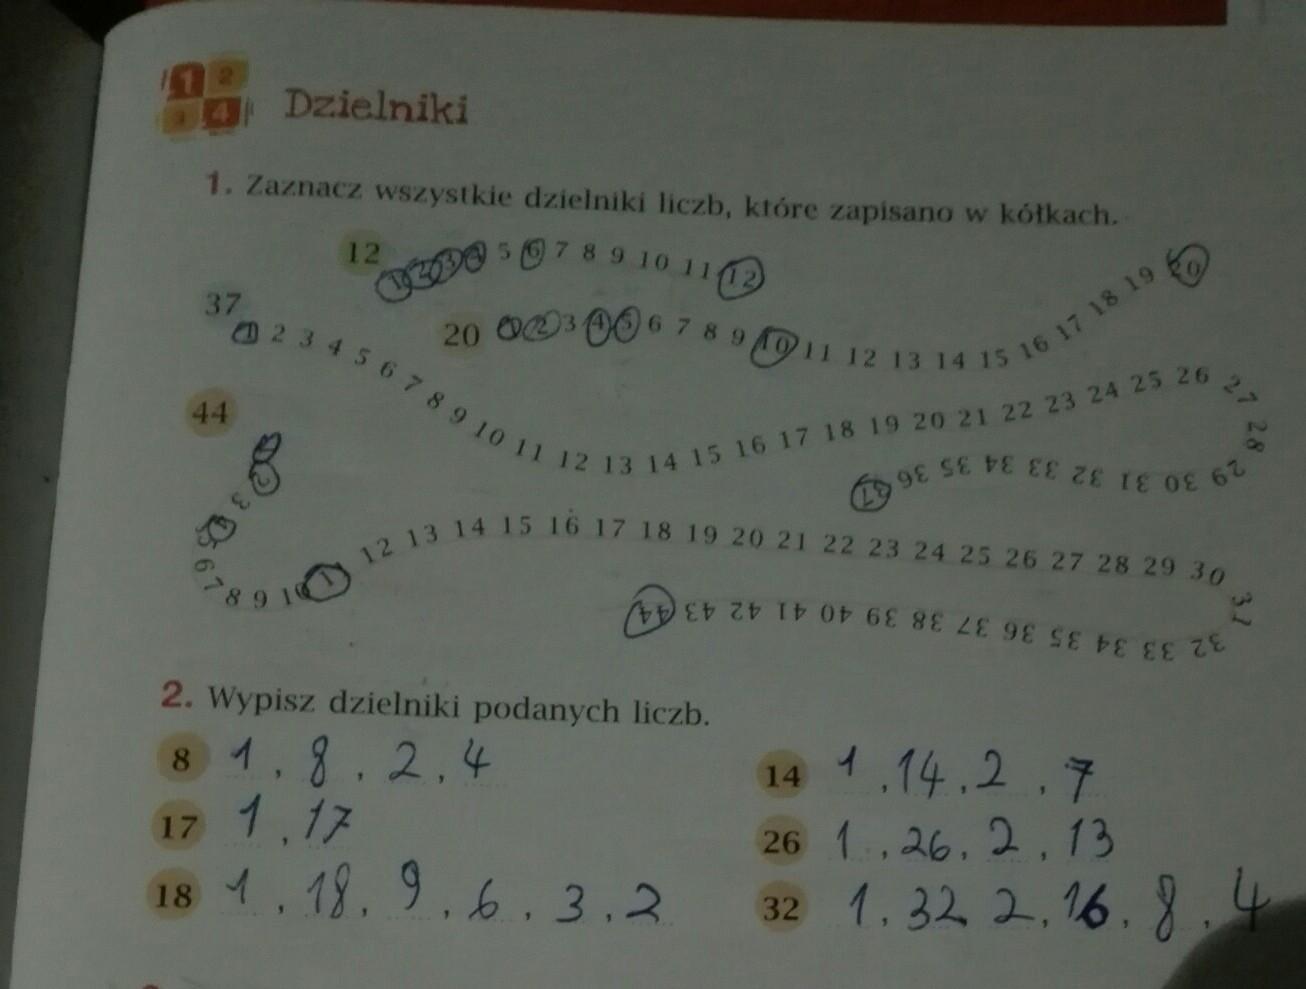 1 2
3 4
Dzielniki
1. Zaznacz wszystkie dzielniki liczb, które zapisano w kółkach.
12 1 2 3 4 5 6 7 8 9 10 11 12
20 1 2 3 4 5 6 7 8 9 10 11 12 13 14 15 16 17 18 19 20
37 1 2 3 4 5 6 7 8 9 10 11 12 13 14 15 16 17 18 19 20 21 22 23 24 25 26 27 28 29 30 31 32 33 34 35 36 37
44 1 2 3 4 5 6 7 8 9 10 11 12 13 14 15 16 17 18 19 20 21 22 23 24 25 26 27 28 29 30 31 32 33 34 35 36 37 38 39 40 41 42 43 44
2. Wypisz dzielniki podanych liczb.
8 1, 8, 2, 4
14 1, 14, 2, 7
17 1, 17
26 1, 26, 2, 13
18 1, 18, 9, 6, 3, 2
32 1, 32 2, 16, 8, 4